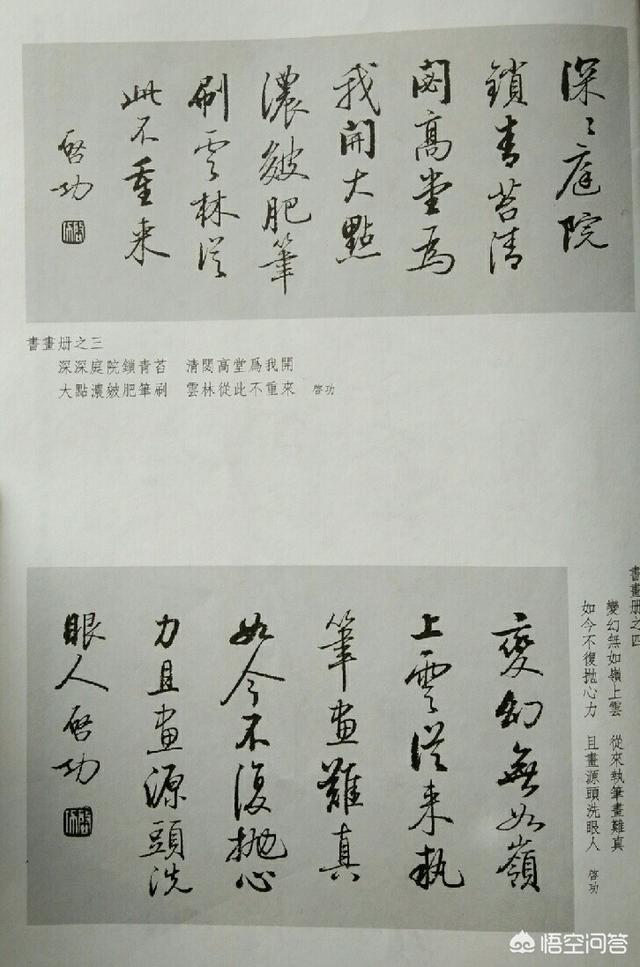 深〻庭院
鎖青苔清
閟高堂為
我開大點
濃皴肥筆
刷雲林從
此不重来
啓功
書畫册之三
深深庭院鎖青苔　清閟高堂爲我開
大點濃皴肥筆刷　雲林從此不重來　啓功
書畫册之四
變幻無如嶺上雲　從來執筆畫難真
如今不復拋心力　且畫源頭洗眼人　啓功
變幻無如嶺
上雲從来執
筆畫難真
如今不復拋心
力且畫源頭洗
眼人啓功
悟空问答